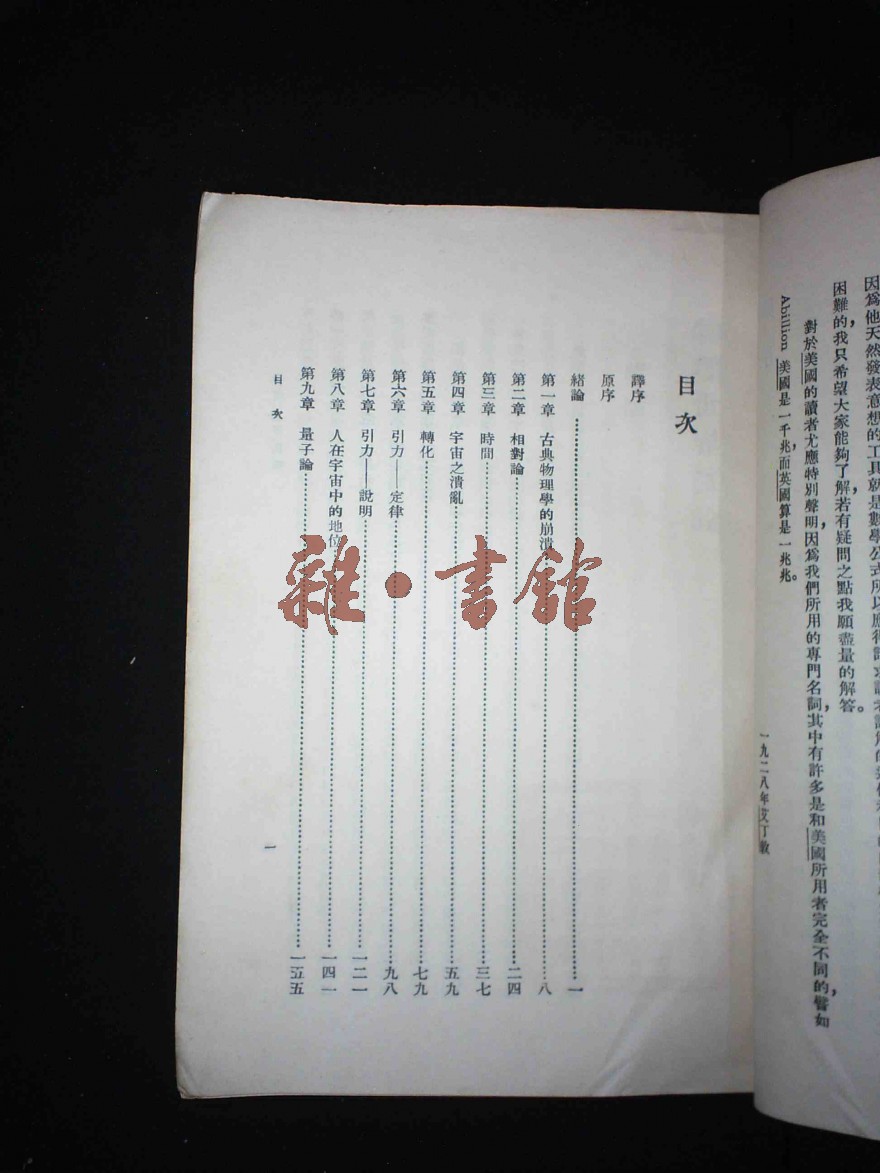 因爲他天然發表意想的工具就是數學公式所以應得
困難的，我只希望大家能夠了解若有疑問之點我願盡量的解答。
對於美國的讀者尤應特別聲明，因爲我們所用的專門名詞，其中有許多是和美國所用者完全不同的，譬如
Abillion 美國是一千兆，而英國算是一兆兆。
一九二八年艾丁敦
目次
譯序
原序
緒論……一
第一章 古典物理學的崩潰……八
第二章 相對論……二四
第三章 時間……三七
第四章 宇宙之潰亂……五九
第五章 轉化……七九
第六章 引力——定律……九八
第七章 引力——說明……一二一
第八章 人在宇宙中的地位……一四一
第九章 量子論……一五五
目次
一
雜·書館